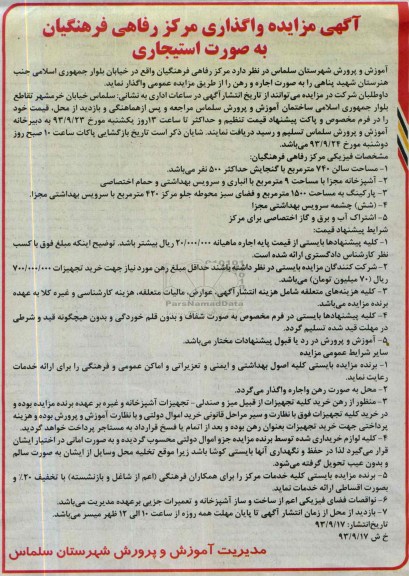 آگهی مزایده واگذاری مرکز رفاهی فرهنگیان
به صورت استیجاری
آموزش و پرورش شهرستان سلماس در نظر دارد مرکز رفاهی فرهنگیان واقع در خیابان بلوار جمهوری اسلامی جنب
هنرستان شهید پناهی را به صورت اجاره و رهن را از طریق مزایده عمومی واگذار نماید.
داوطلبان شرکت در مزایده می توانند از تاریخ انتشار آگهی در ساعات اداری به نشانی: سلماس خیابان خرمشهر تقاطع
بلوار جمهوری اسلامی ساختمان آموزش و پرورش سلماس مراجعه و پس ازهماهنگی و بازدید از محل، قیمت خود
را در فرم مخصوص و پاکت پیشنهاد قیمت تنظیم و حداکثر تا ساعت ۱۳روز یکشنبه مورخ ۹۳/۹/۲۳ به دبیرخانه
آموزش و پرورش سلماس تسلیم و رسید دریافت نمایند. شایان ذکر است تاریخ بازگشایی پاکات ساعت ۱۰ صبح روز
دوشنبه مورخ ۹۳/۹/۲۴ می‌باشد.
مشخصات فیزیکی مرکز رفاهی فرهنگیان:
۱- مساحت سالن ۷۴۰ مترمربع با گنجایش حداکثر ۵۰۰ نفر می‌باشد.
۲- آشپزخانه مجزا با مساحت ۹ مترمربع با انباری و سرویس بهداشتی و حمام اختصاصی
۳- پارکینگ به مساحت ۱۵۰۰ مترمربع و فضای سبز محوطه جلو مرکز ۴۲۰ مترمربع با سرویس بهداشتی مجزا.
۴- (شش) چشمه سرویس بهداشتی مجزا
۵- اشتراک آب و برق و گاز اختصاصی برای مرکز
شرایط پیشنهاد قیمت:
۱- کلیه پیشنهادها بایستی از قیمت پایه اجاره ماهیانه ۲۰/۰۰۰/۰۰۰ ریال بیشتر باشد. توضیح اینکه مبلغ فوق با کسب
نظر کارشناس دادگستری ارائه شده است.
۲- شرکت کنندگان مزایده بایستی در نظر داشته باشند حداقل مبلغ رهن مورد نیاز جهت خرید تجهیزات ۷۰۰/۰۰۰/۰۰۰
ریال (۷۰ میلیون تومان) می‌باشد.
۳- کلیه هزینه‌های متعلقه شامل هزینه انتشارآگهی، عوارض، مالیات متعلقه، هزینه کارشناسی و غیره کلا به عهده
برنده مزایده می‌باشد.
۴- کلیه پیشنهادها بایستی در فرم مخصوص به صورت شفاف و بدون قلم خوردگی و بدون هیچگونه قید و شرطی
در مهلت قید شده تسلیم گردد.
۵- آموزش و پرورش در رد یا قبول پیشنهادات مختار می‌باشد.
سایر شرایط عمومی مزایده
۱- برنده مزایده بایستی کلیه اصول بهداشتی و ایمنی و تعزیراتی و اماکن عمومی و فرهنگی را برای ارائه خدمات
رعایت نماید.
۲- محل به صورت رهن واجاره واگذار می‌گردد.
۳- منظور از رهن خرید کلیه تجهیزات از قبیل میز و صندلی- تجهیزات آشپزخانه و غیره بر عهده برنده مزایده بوده و
در خرید کلیه تجهیزات فوق با نظارت و سیر مراحل قانونی خرید اموال دولتی و با نظارت آموزش و پرورش بوده و هزینه
پرداختی جهت خرید تجهیزات بعنوان رهن بوده و بعد از اتمام یا فسخ قرارداد به مستاجر پرداخت خواهد گردید.
۴- کلیه لوازم خریداری شده توسط برنده مزایده جزو اموال دولتی محسوب گردیده و به صورت امانی در اختیار ایشان
قرار می‌گیرد لذا در حفظ و نگهداری آنها بایستی کوشا باشد زیرا موقع تخلیه محل وسایل از ایشان به صورت سالم
و بدون عیب تحویل گرفته می‌شود.
۵- برنده مزایده بایستی کلیه خدمات مرکز را برای همکاران فرهنگی (اعم از شاغل و بازنشسته) با تخفیف ۲۰٪ و
بصورت اقساطی ارائه خدمات نماید.
۶- نواقصات فضای فیزیکی اعم از ساخت و ساز آشپزخانه و تعمیرات جزیی برعهده مدیریت می‌باشد.
۷- بازدید از محل از زمان انتشار آگهی تا پایان مهلت همه روزه از ساعت ۱۰ الی ۱۲ ظهر میسر می‌باشد.
تاریخ‌انتشار: ۹۳/۹/۱۷
خ ش ۹۳/۹/۱۷
مدیریت آموزش و پرورش شهرستان سلماس
ParsNamadData